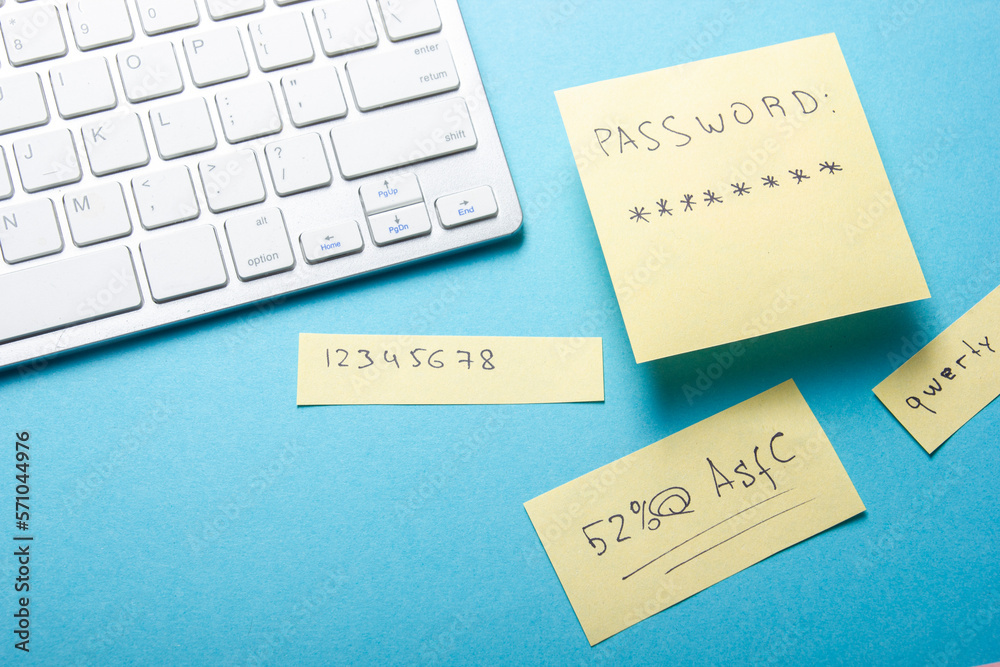 * 8
( 9
) 0
I
O
P
{ [
} ]
| \
enter
return
J
K
L
: ;
" '
shift
N
M
< ,
> .
? /
alt
option
PgUp
Home
PgDn
End
PASSWORD:
********
12345678
qwerty
52%@ AsfC
Adobe Stock | #571044976
Adobe Stock